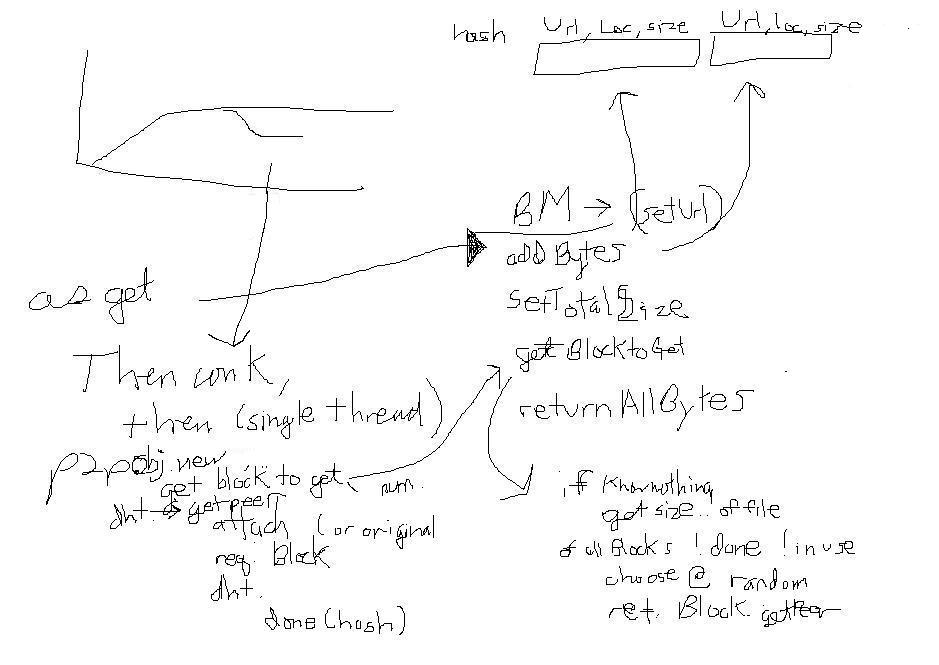 hash Url, Loc, size Url, loc, size
BM → (setUrl)
addBytes
setTotalSize
get BlocktoGet
returnAllBytes
as get
Then conk,
then (single thread)
p2pobj.new
get block to get num.
dht → getpeer
attach (or original
req. Block
dht.
done (hash)
if Know nothing
get size of file
of all Blocks !done !in use
choose @ random
ret. Block getter